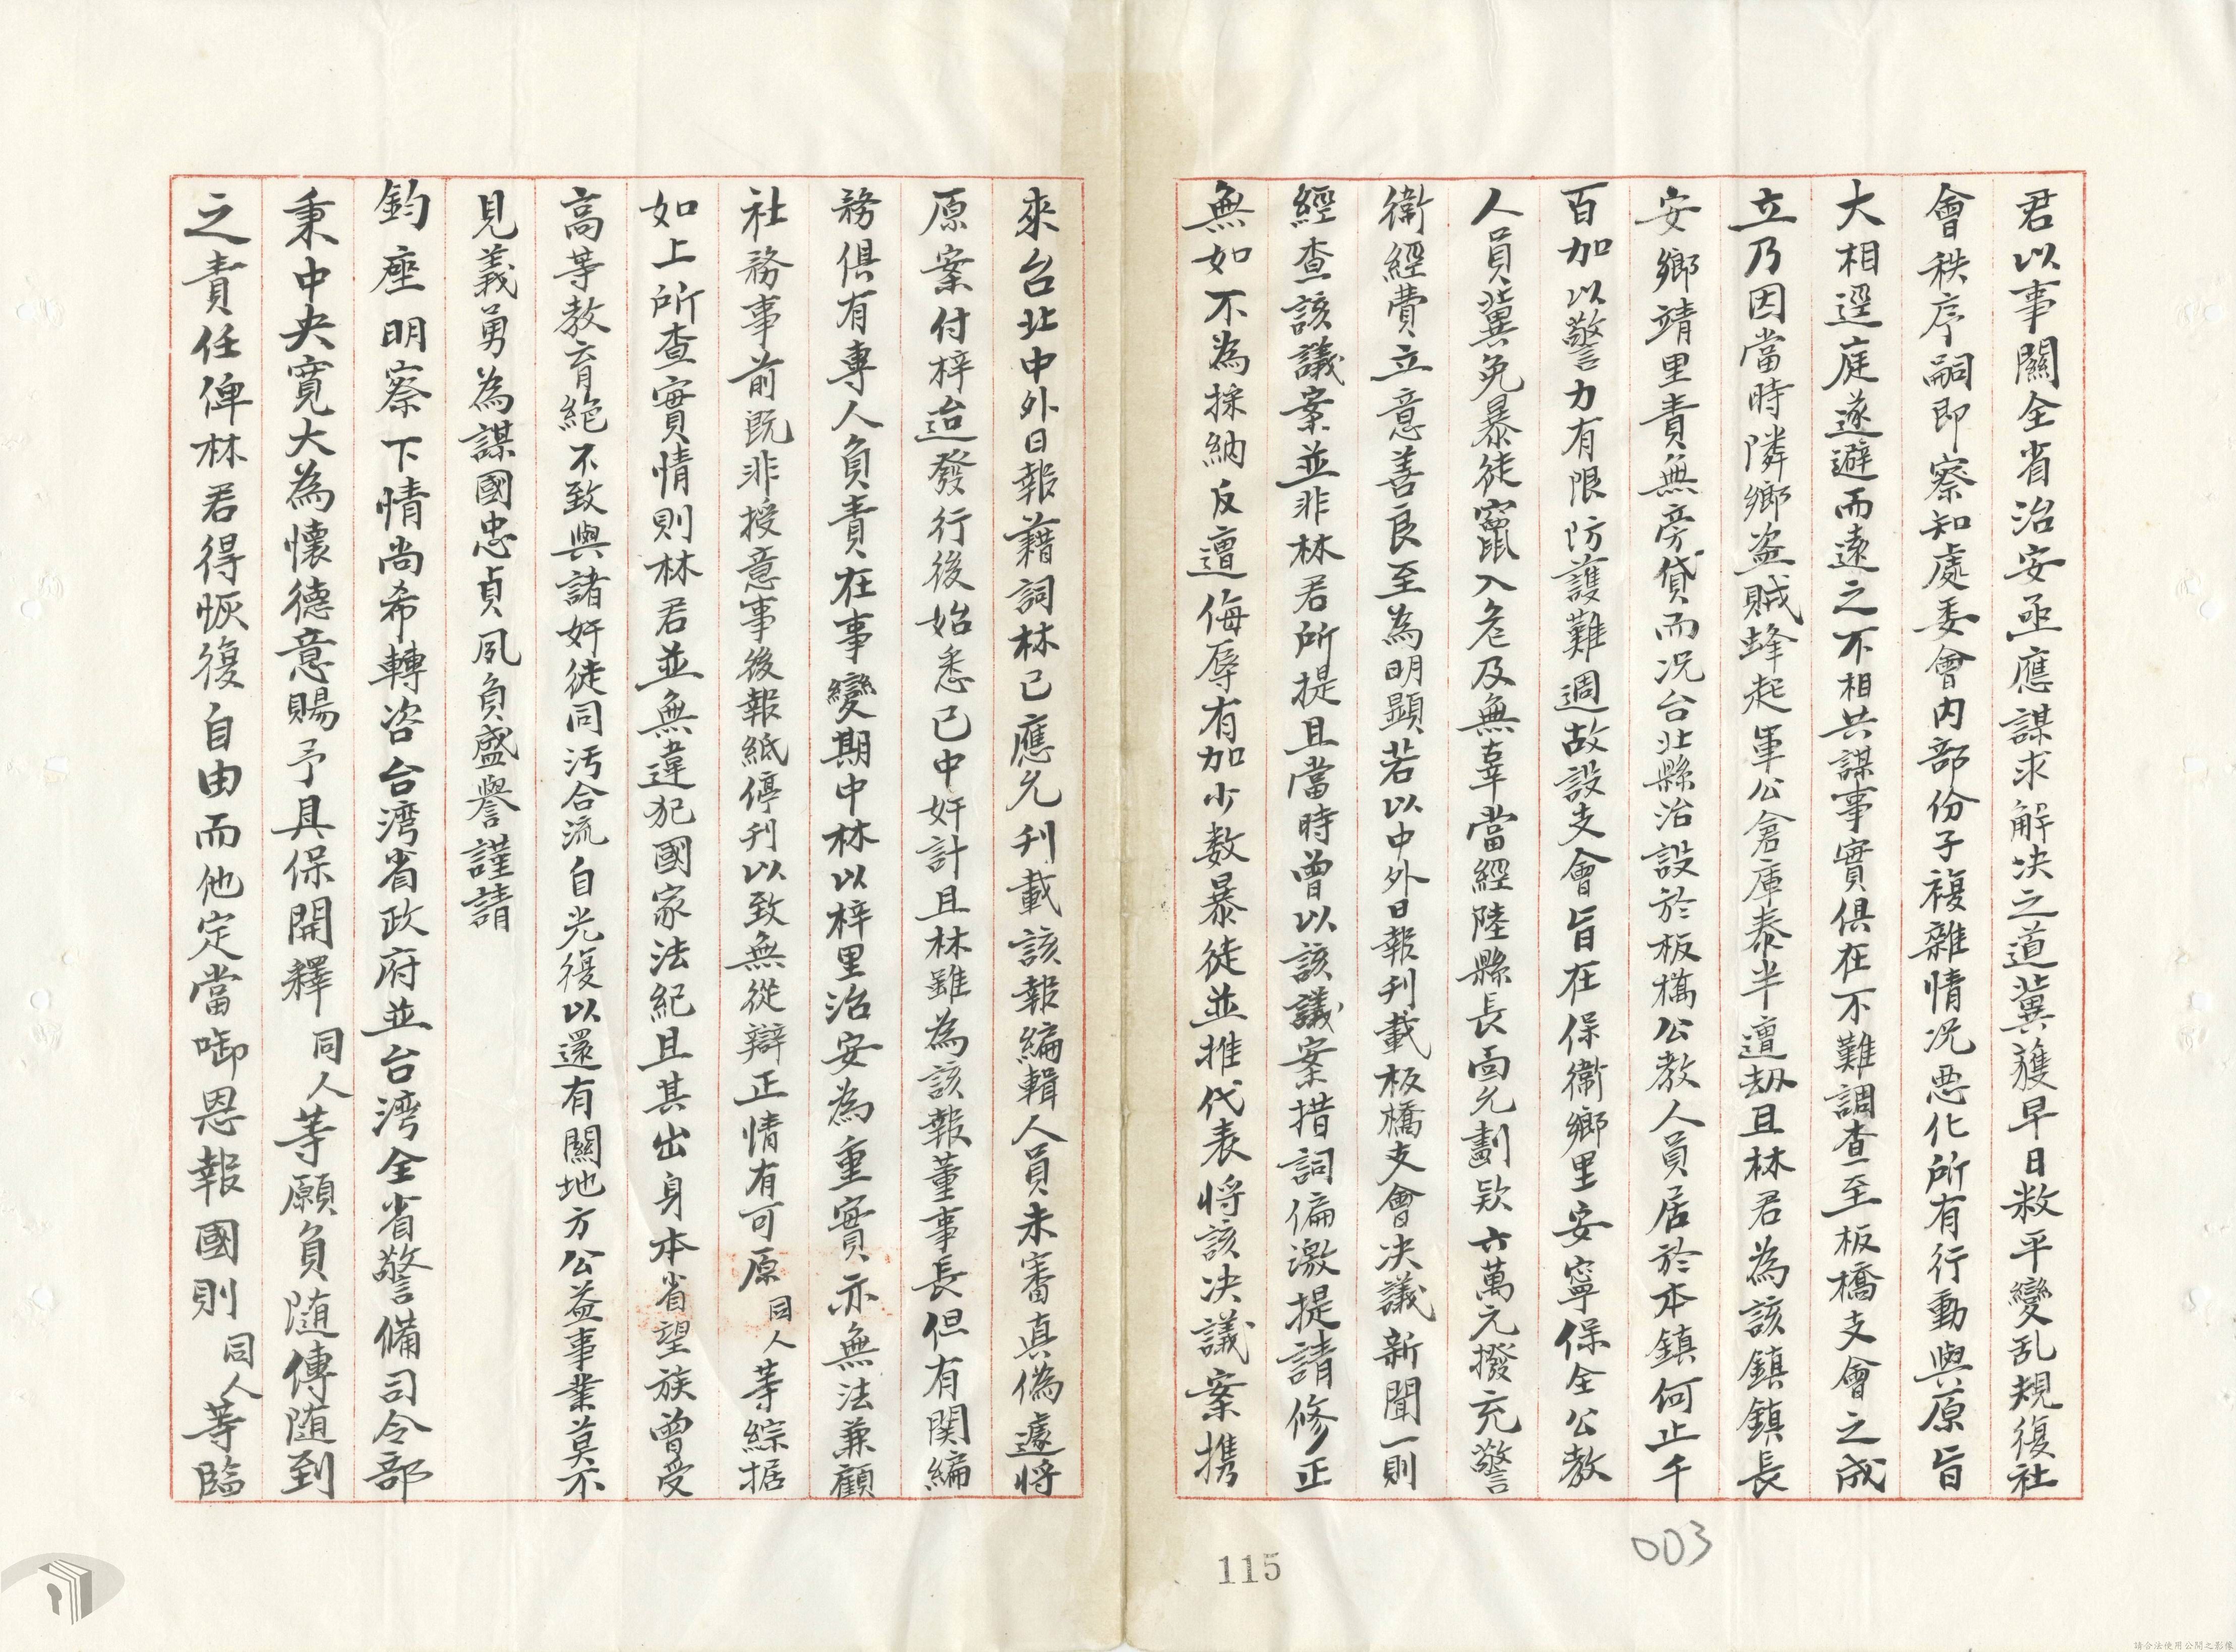 君以事關全省治安亟應謀求解决之道冀獲早日敉平變乱規復社
會秩序嗣即察知處委會内部份子複雜情况惡化所有行動與原旨
大相逕庭遂避而遠之不相共謀事實俱在不難調查至板橋支會之成
立乃因當時隣鄉盗賊蜂起軍公倉庫泰半遭刼且林君為該鎮鎮長
安鄉靖里責無旁貸而况台北縣治設於板橋公教人員居於本鎮何止千
百加以警力有限防護難週故設支會旨在保衛鄉里安寧保全公教
人員冀免暴徒竄入危及無辜當經陸縣長面允劃欵六萬元撥充警
衛經費立意善良至為明顯若以中外日報刊載板橋支會决議新聞一則
經查該議案並非林君所提且當時曾以該議案措詞偏激提請修正
無如不為採納反遭侮辱有加少数暴徒並推代表将該决議案携
來台北中外日報藉詞林已應允刊載該報編輯人員未審真偽遽将
原案付梓迨發行後始悉已中奸計且林雖為該報董事長但有関編
務俱有專人負責在事變期中林以梓里治安為重實亦無法兼顧
社務事前既非授意事後報紙停刊以致無從辯正情有可原同人等綜据
如上所查實情則林君並無違犯國家法紀且其出身本省望族曾受
高等教育絕不致與諸奸徒同污合流自光復以還有關地方公益事業莫不
見義勇為謀國忠貞夙負盛譽謹請
鈞座明察下情尚希轉咨台湾省政府並台湾全省警備司令部
秉中央寬大為懷德意賜予具保開釋同人等願負随傳随到
之責任俾林君得恢復自由而他定當啣恩報國則同人等臨
003
115
請合法使用公開之影像